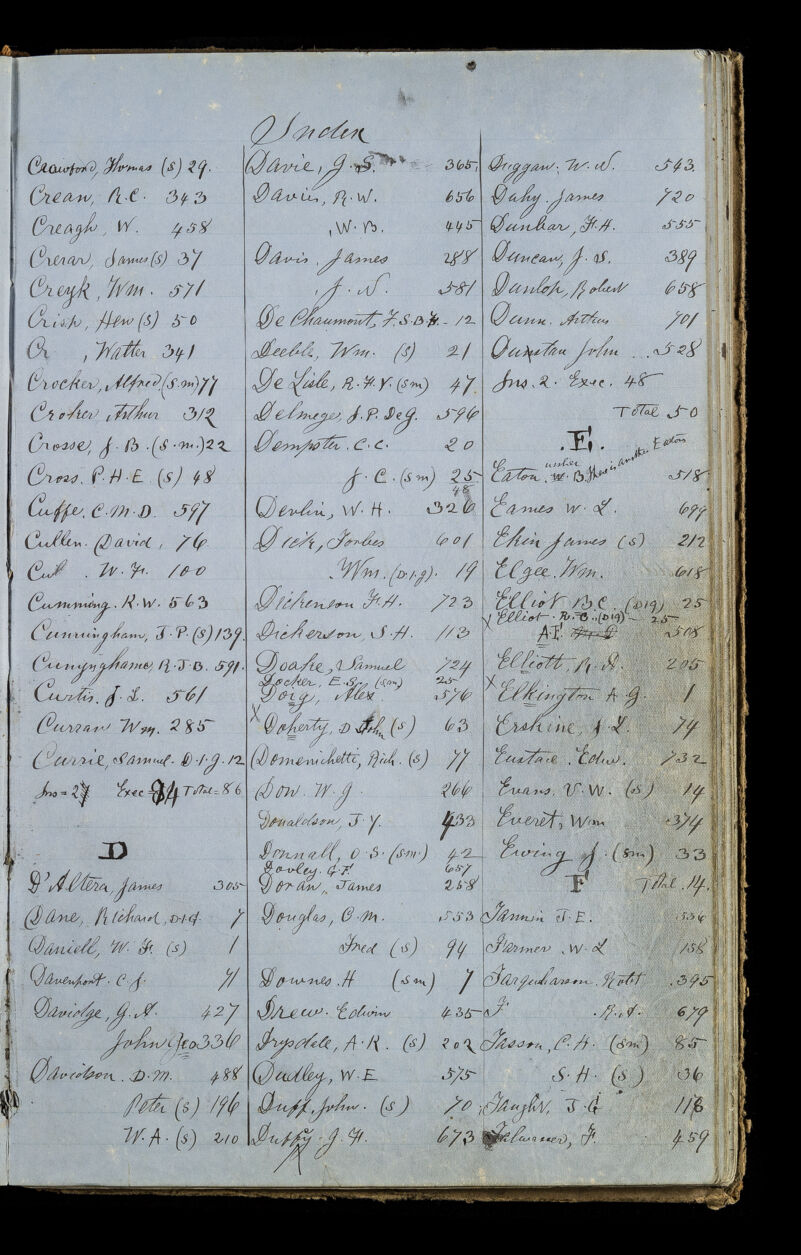 Index
Crawford, Thomas (s) 29.
Crean, R.C. 343
Creagh, W. 458
Crerar, James (s) 37
Creyk, Wm. 571
Crisp, Hen (s) 50
Cr , Walter 341
Crocker, Alfred (s.m) 77
Croker, Arthur 312
Crosse, J.B. (s.m.) 22
Cross. P.H.E. (s) 48
Cuffe. C.M.D. 597
Cullen. David, 76
W. Fr. 100
Cumming. R.W. 563
Cunningham, J.P. (s) 139
Cunynghame, R.J.B. 591.
Curtis. J.L. 561
Curran Wm. 285
Currie, Samuel. D.I.G. 12
Ins = 27 Exec = 84 Total = 86
D
D'Altera, James 305
Dane, Richard, D.I.G. 7
Daniell, W. F. (s) 1
Davenport. C.J. 71
Davidge, G.A. 427
John Geo 336
Davidson. D.M. 488
Peter (s) 196
W.A. (s) 210
Davie, J.S. 365
Davies, R.W. 656
, W.B. 445
Davis, James 288
, J.N. 581
De Chaumont, F.S.B.F. - 12
Deeble, Wm. (s) 21
De Lisle, R.F.V. (sm) 47.
Delmege, J.P. Deg. 596
Dempster. C.C. 20
J.C. (sm) 25
48
Devlin, W.H. 326
Dick, Forbes 601
Wm. (D.I.G). 19
Dickenson F.H. 723
Dickerson, S.H. 113
Doake, Samuel 724
Docker, E.S. (sm) 25
Doig, Alex 576
X Doherty, D John (s) 63
Domenichetti, Rich. (s) 77
Don. W.G. 266
Donaldson, J.Y. 433
Donnall, O.S. (sm.) 42
Dooley. G.F. 657
Doran, James 258
Douglas, C.M. 553
Fred (s) 94
Downes. H (sm) 7
Drew. Edwin 435
Drysdale, A.R. (s) 202
Dudley, W.E 575
Duff, John. (s) 70
Duffy. J.F. 673
Duggan. W.N. 543
Duhy. James 720
Dunbar, F.H. 555
Duncan, J.S. 389
Dunlop, Robert 658
Dunn. Arthur 701
Dunstan John 528
Ins. 2. Exec. 48
Total 50
.E.
Eaton usher W.B. There is another Eaton 518
Eames W.L. 699
Ekin James (s) 212
Elgee. Wm. 618
Elliot B.C. (DIG) 25
X Elliot. R.B. (DIG) - 25
A.F. 508
Elliott, R.A. 205
X Elkington A.G. 1
Erskine, J L. 74
Eustace. Edw. 732
Evans. V.W. (s) 14
Everet, Wm 374
Ewing J. (sm) 33
F Total .14.
Fannin J.E. 336
Farmer. W.L 158
Farquharson. Robt .395
F .R.A. 679
Fasson, C.H. (sm) 85
S.H. (s) 36
Faught, J.G 118
Falwasser, F. 459